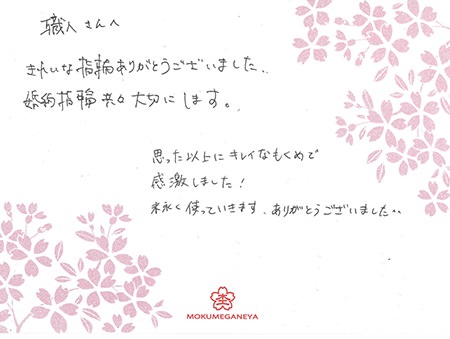 職人さんへ
きれいな指輪ありがとうございました。
婚約指輪共々大切にします。
思った以上にキレイなもくめで
感激しました！
末永く使っていきます。ありがとうございました。
MOKUMEGANEYA